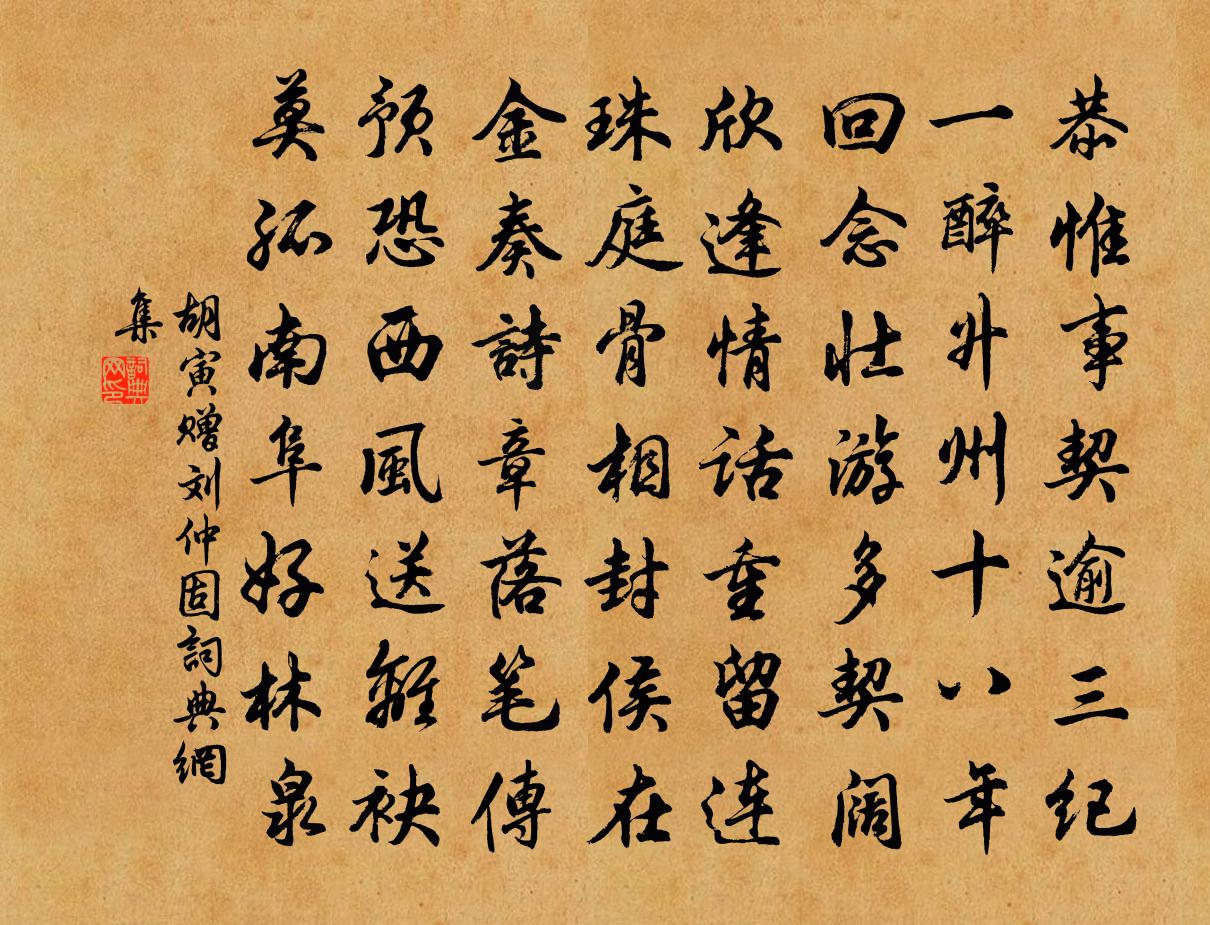 恭惟事契逾三纪
一醉升州十八年
回念壮游多契阔
欣逢情话重留连
珠庭骨相封侯在
金奏詩章落笔傳
预恐西風送離袂
莫孤南阜好林泉
胡寅赠刘仲固詞典網
集
詞典
网印